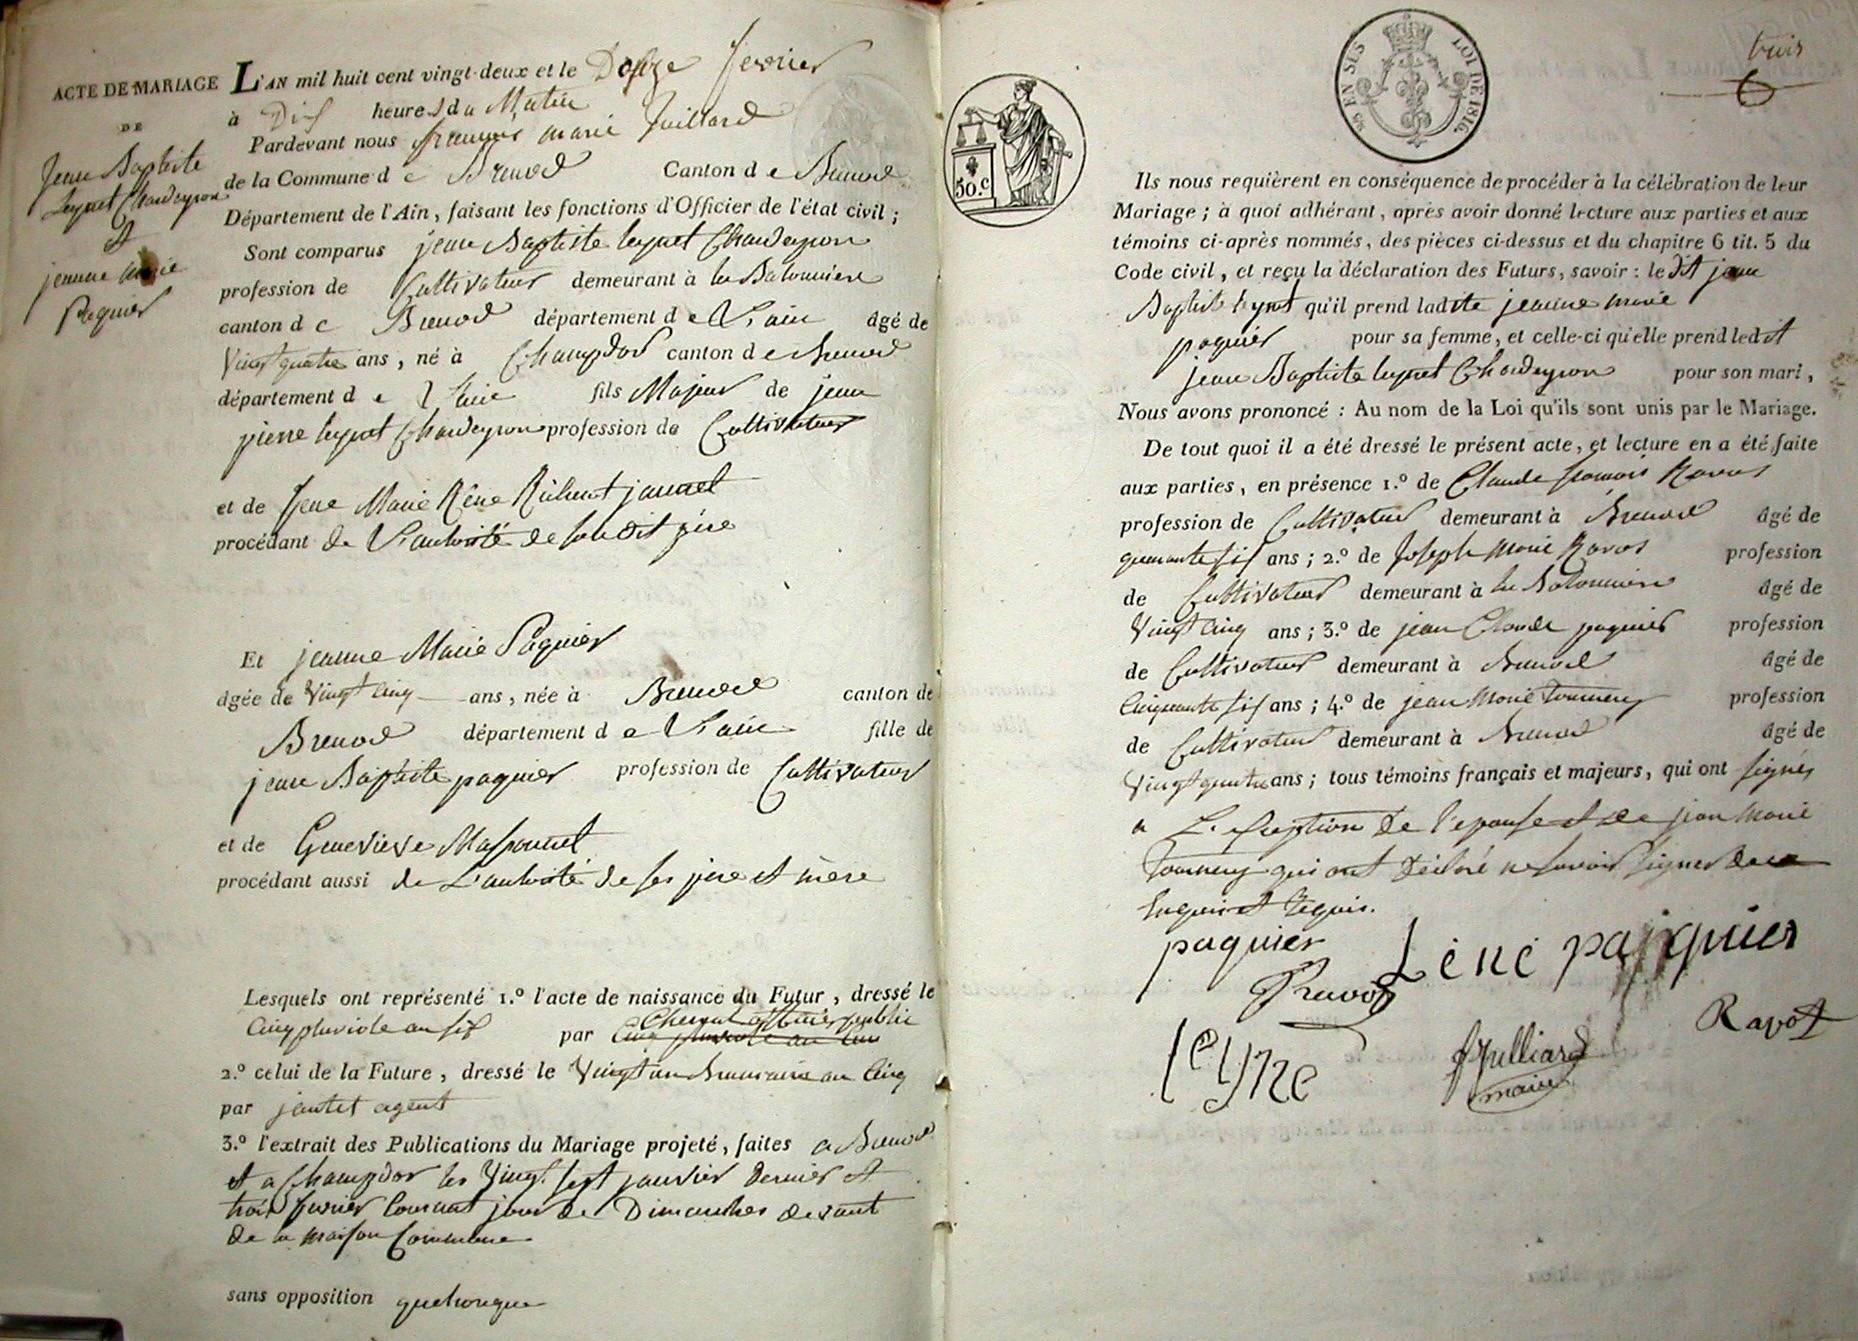 ACTE DE MARIAGE
DE
Jean Baptiste
Leynet Chardeyron
Et
jeanne Marie
Paquier
L'AN mil huit cent vingt-deux et le Douze fevrier
à Dix heures du Matin
Pardevant nous françois marie Juillard
de la Commune de Brenod Canton de Brenod
Département de l'Ain, faisant les fonctions d'Officier de l'état civil;
Sont comparus jean Baptiste leynet Chardeyron
profession de Cultivateur demeurant à la Batonnière
canton de Brenod département de L'ain âgé de
Vingt quatre ans, né à Champdor canton de Brenod
département de l'ain fils Majeur de jean
pierre leynet Chardeyron profession de Cultivateur
et de Marie Rêne jannet
procédant de L'autorité de son dit père
Et jeanne Marie Paquier
âgée de Vingt cinq ans, née à Brenod canton de
Brenod département de L'ain fille de
jean Baptiste paquier profession de Cultivateur
et de Genevieve Massonnet
procédant aussi de L'autorité de ses père et mère
Lesquels ont représenté 1.º l'acte de naissance du Futur, dressé le
Cinq pluviose an six par officier public
2.º celui de la Future, dressé le Vingt un Brumaire an Cinq
par jantet agent
3.º l'extrait des Publications du Mariage projeté, faites a Brenod
et a Champdor les Vingt sept janvier dernier et
trois fevrier Courant jour de Dimanches devant
de la maison Commune
sans opposition quelconque
50.C
25 EN SUS
LOI DE 1816.
trois
6
Ils nous requièrent en conséquence de procéder à la célébration de leur
Mariage; à quoi adhérant, après avoir donné lecture aux parties et aux
témoins ci-après nommés, des pièces ci-dessus et du chapitre 6 tit. 5 du
Code civil, et reçu la déclaration des Futurs, savoir: le dit jean
Baptiste leynet qu'il prend ladite jeanne marie
paquier pour sa femme, et celle-ci qu'elle prend ledit
jean Baptiste leynet Chardeyron pour son mari,
Nous avons prononcé: Au nom de la Loi qu'ils sont unis par le Mariage.
De tout quoi il a été dressé le présent acte, et lecture en a été faite
aux parties, en présence 1.º de Claude françois Ravot
profession de Cultivateur demeurant à Brenod âgé de
quarante six ans; 2.º de Joseph Marie Ravot profession
de Cultivateur demeurant à la Batonnière âgé de
Vingt cinq ans; 3.º de jean Claude paquier profession
de Cultivateur demeurant à Brenod âgé de
Cinquante six ans; 4.º de jean Marie Tournery profession
de Cultivateur demeurant à Brenod âgé de
Vingt quatre ans; tous témoins français et majeurs, qui ont signés
a L'exception de l'epouse et de jean Marie
Tournery qui ont déclaré ne savoir signer de ce
Enquis et Requis.
paquier
Lene paquier
Ravot
Ravot
leyne
Julliard
maire